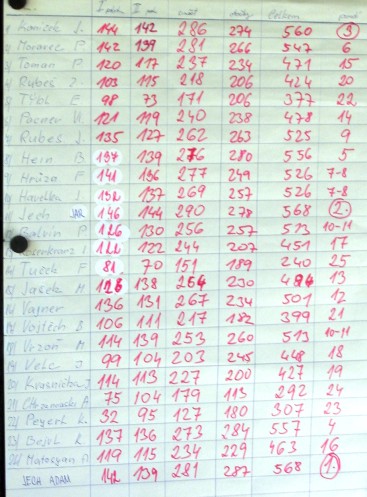 I. II.
Koníček J. 144 142 286 274 560 3
Moravec P 142 139 281 266 547 6
Toman P 120 117 237 234 471 15
Rubeš J. 103 115 218 206 424 20
Tybl E 98 73 171 206 377 22
Pacner V. 121 119 240 238 478 14
Rubeš J. 135 127 262 263 525 9
Hein B 137 139 276 280 556 5
Hrůza F 141 136 277 249 526 7-8
Havelka J. 132 137 269 257 526 7-8
Jech JAR 146 144 290 278 568 2.
Galvin P 126 130 256 257 513 10-11
Rosenkranz 122 122 244 207 451 17
Tuček F 81 70 151 189 240 25
Jašek M 126 138 264 230 494 13
Vajner 136 131 267 234 501 12
Vojtěch B 106 111 217 182 399 21
Vrzoň M 114 139 253 260 513 10-11
Velc J 99 104 203 245 448 18
Krasnička J 114 113 227 200 427 19
75 104 179 113 292 24
Peyerk R. 32 95 127 180 307 23
Bejbl K. 137 136 273 284 557 4
Matosyan A 119 115 234 229 463 16
JECH ADAM 142 139 281 287 568 1.